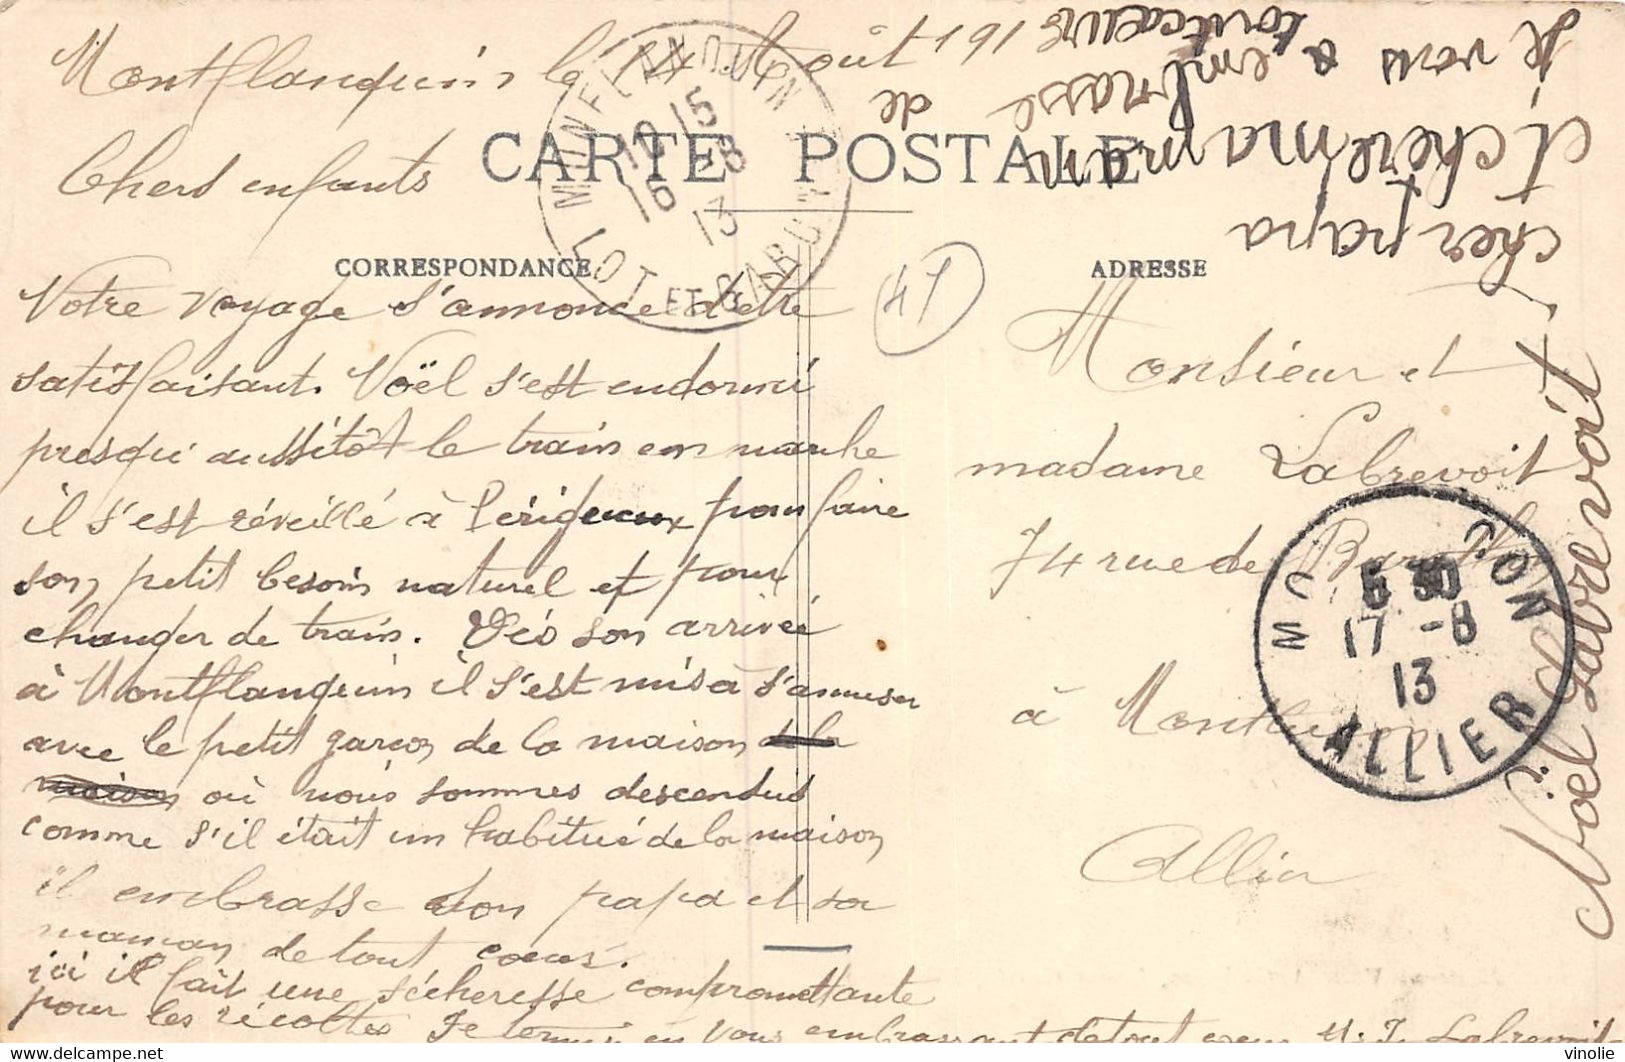 Montflanquin le 14 Août 1913
CARTE POSTALE
Chers enfants
CORRESPONDANCE
Votre voyage s'annonce d'être
satisfaisant. Noël s'est endormi
presqu'aussitôt le train en marche
il s'est réveillé à Périgueux pour faire
son petit besoin naturel et pour
changer de train. Dès son arrivée
à Montflanquin il s'est mis à s'amuser
avec le petit garçon de la maison
où nous sommes descendus
comme s'il était un habitué de la maison
il embrasse son papa et sa
maman de tout cœur.
ici il fait une sécheresse compromettante
pour les récoltes Je termine en vous embrassant de tout cœur M. J. Labrevoit
ADRESSE
Monsieur et
madame Labrevoit
74 rue de
à Montluçon
Allier
cher papa
et chère maman
Je vous embrasse de
tout cœur
Noël Labrevoit
41
MONFLANQUIN
LOT ET GARONNE
10 15
16 -8
13
MONTLUÇON
5 30
17 -8
13
ALLIER
vinolie